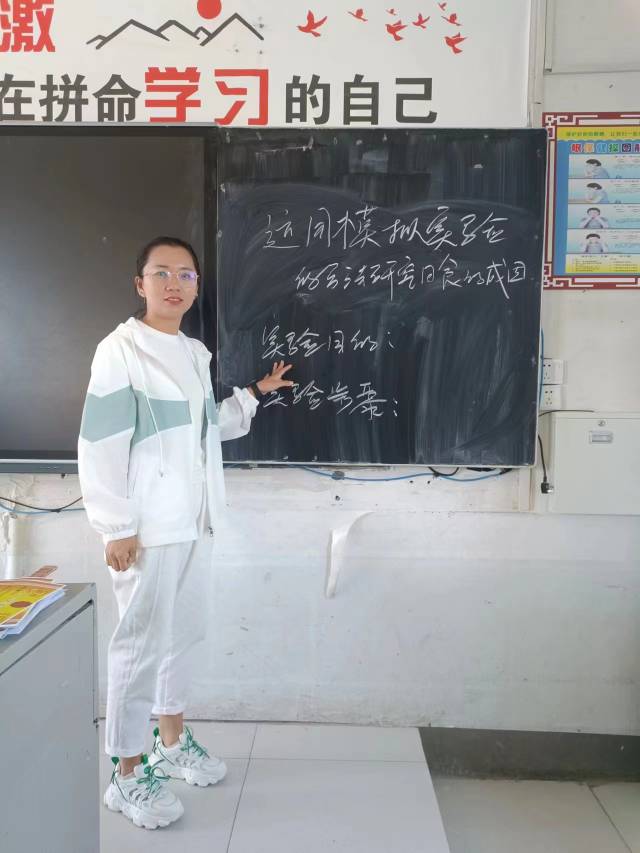 激
在拼命学习的自己
运用模拟实验
的方法研究日食的成因
实验目的：
实验步骤：